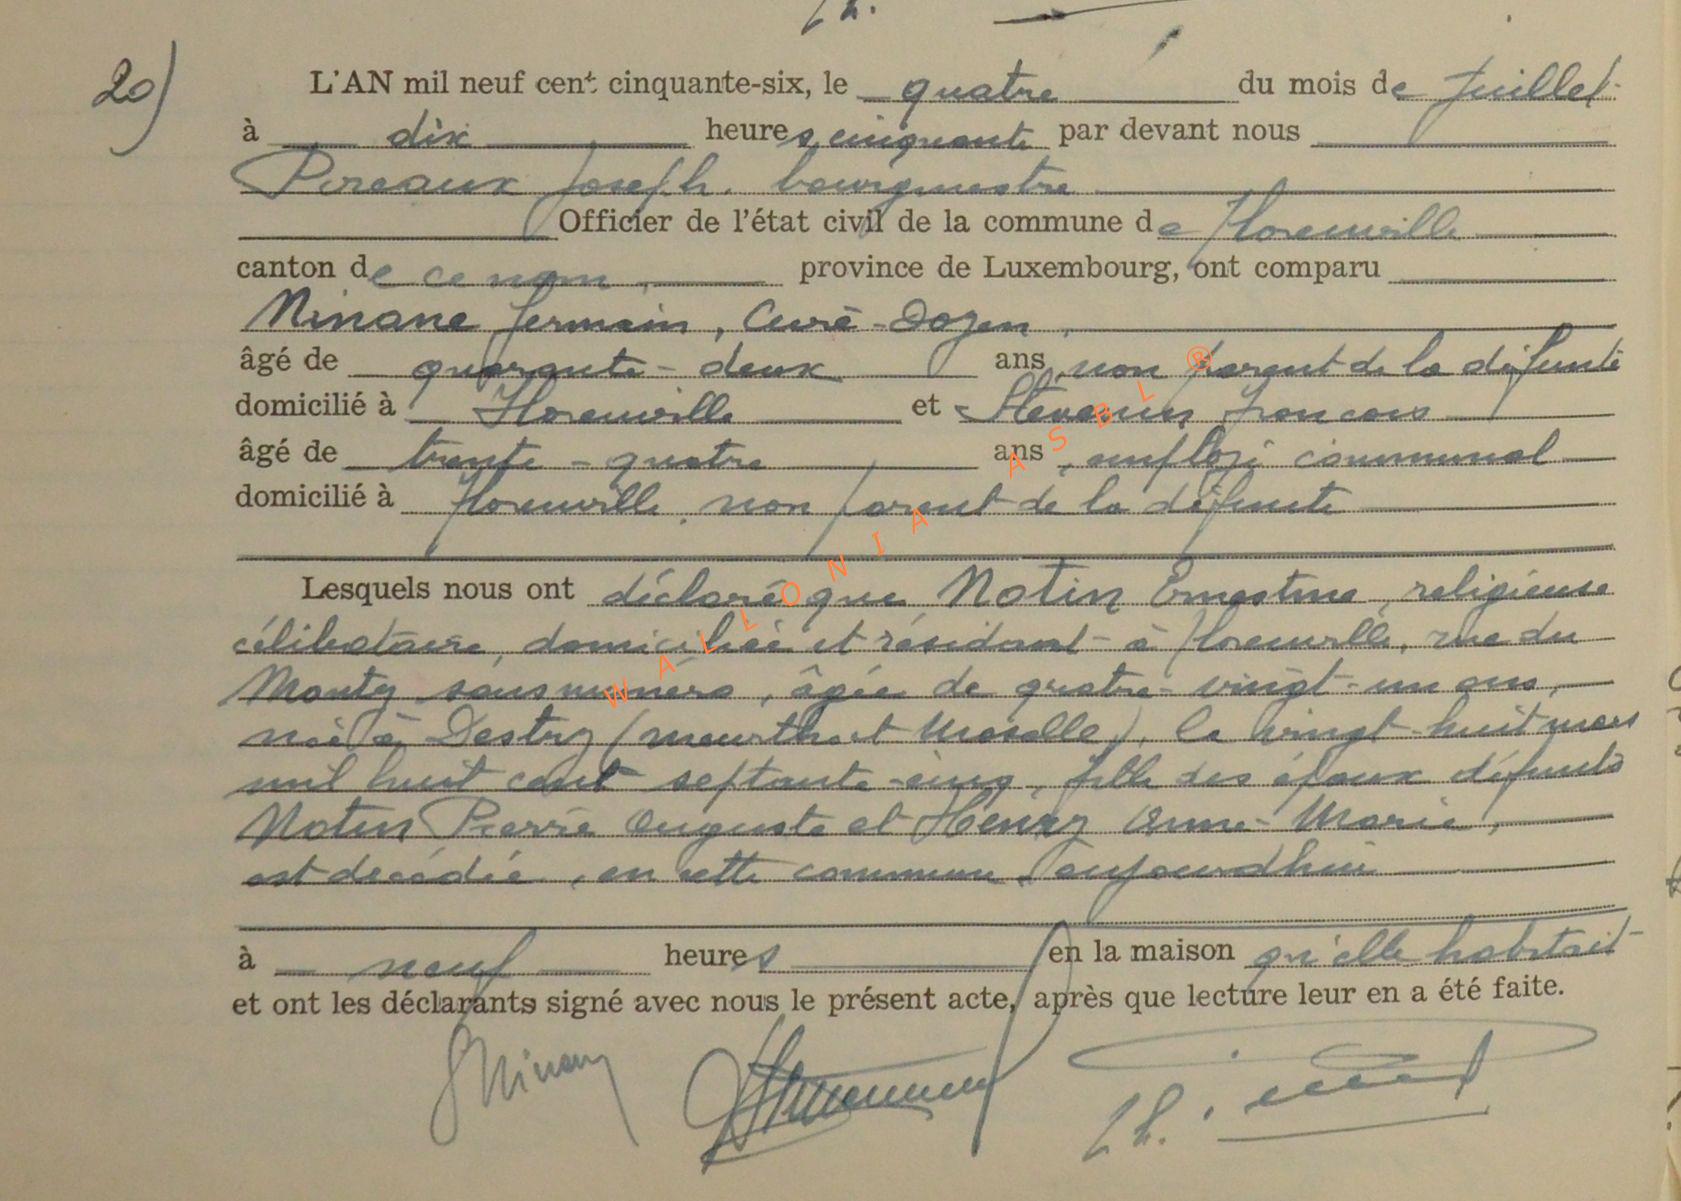 20)
L'AN mil neuf cent cinquante-six, le quatre du mois de Juillet
à dix heures cinquante par devant nous
Pireaux Joseph, bourgmestre
Officier de l'état civil de la commune de Florenville
canton de ce nom, province de Luxembourg, ont comparu
Ninane Germain, Curé-Doyen,
âgé de quarante-deux ans, non parent de la défunte
domicilié à Florenville et Stevenin Francois
âgé de trente-quatre ans, employé communal
domicilié à Florenville, non parent de la défunte
Lesquels nous ont déclaré que Notin Ernestine, religieuse
célibataire, domiciliée et résidant à Florenville, rue du
Monty sans numéro, âgée de quatre-vingt-un ans,
née à Destry (Meurthe et Moselle), le vingt-huit mars
mil huit cent septante-cinq, fille des époux défunts
Notin Pierre Auguste et Henry Anne-Marie,
est décédée, en cette commune, aujourdhui
à neuf heures en la maison qu'elle habitait
et ont les déclarants signé avec nous le présent acte, après que lecture leur en a été faite.
WALLONIA ASBL ®